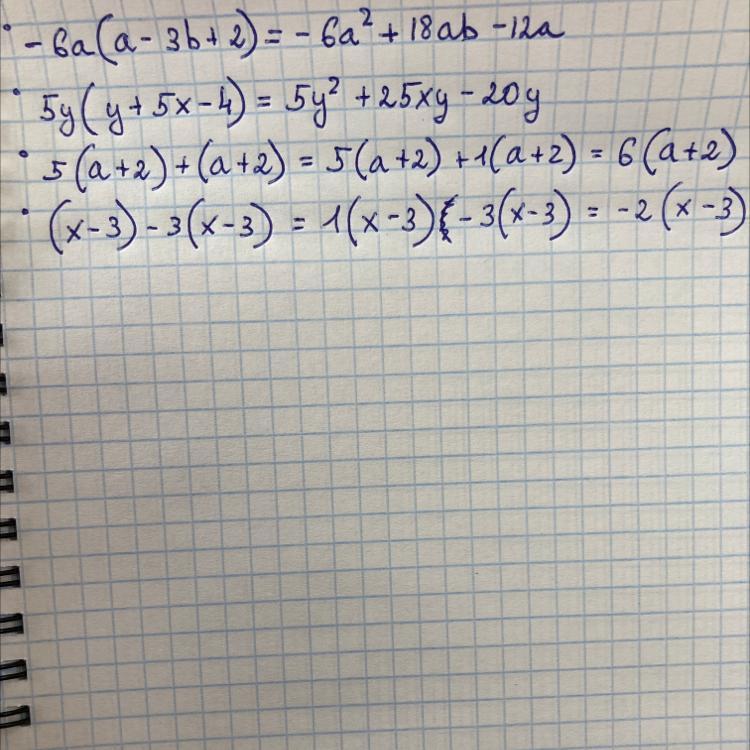 • -6a(a-3b+2) = -6a² + 18ab - 12a
• 5y(y+5x-4) = 5y² + 25xy - 20y
• 5(a+2)+(a+2) = 5(a+2) + 1(a+2) = 6(a+2)
• (x-3)-3(x-3) = 1(x-3) - 3(x-3) = -2(x-3)